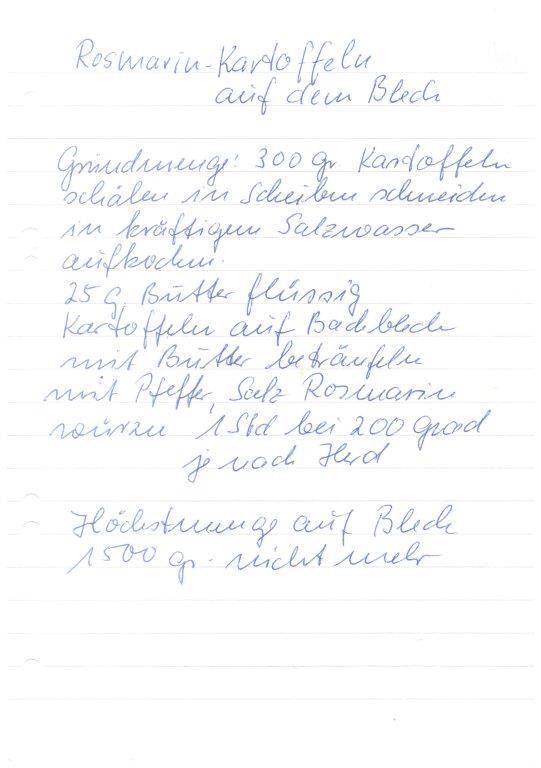 Rosmarin-Kartoffeln
auf dem Blech
Grundmenge: 300 gr Kartoffeln
schälen in Scheiben schneiden
in kräftigem Salzwasser
aufkochen.
25 g Butter flüssig
Kartoffeln auf Backblech
mit Butter beträufeln
mit Pfeffer, Salz Rosmarin
würzen 1 Std bei 200 Grad
je nach Herd
Höchstmenge auf Blech
1500 gr. nicht mehr